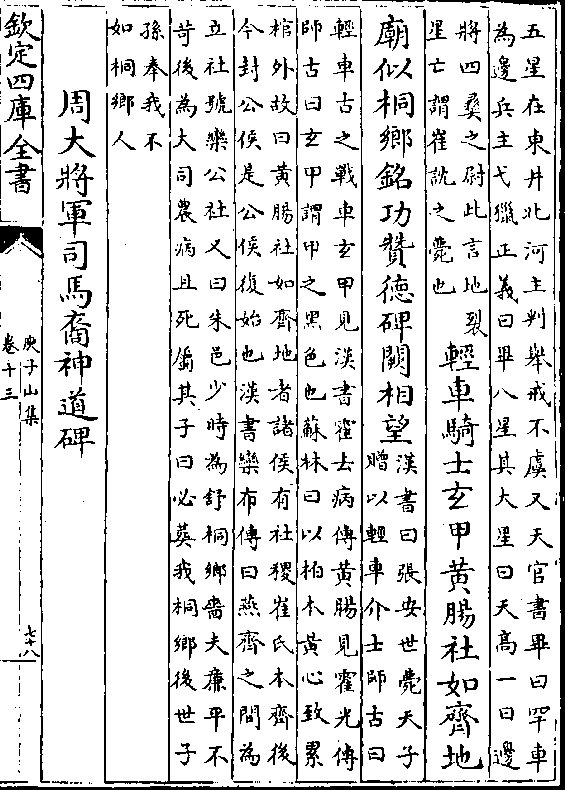 五星在東井北河主判舉戒不虞又天官書畢曰罕車
為邊兵主弋獵正義曰畢八星其大星曰天高一曰邊
將四夷之尉此言地裂
星亡謂崔訦之薨也
輕車騎士玄甲黃腸社如齊地
廟似桐鄉銘功贊德碑闕相望
漢書曰張安世薨天子
贈以輕車介士師古曰
輕車古之戰車玄甲見漢書霍去病傳黃腸見霍光傳
師古曰玄甲謂甲之黑色也蘇林曰以柏木黃心致累
棺外故曰黃腸社如齊地者諸侯有社稷崔氏本齊後
今封公侯是公侯復始也漢書欒布傳曰燕齊之間為
立社號欒公社又曰朱邑少時為舒桐鄉嗇夫廉平不
苛後為大司農病且死屬其子曰必葬我桐鄉後世子
孫奉我不
如桐鄉人
周大將軍司馬裔神道碑
欽定四庫全書
庾子山集
卷十三
七十八